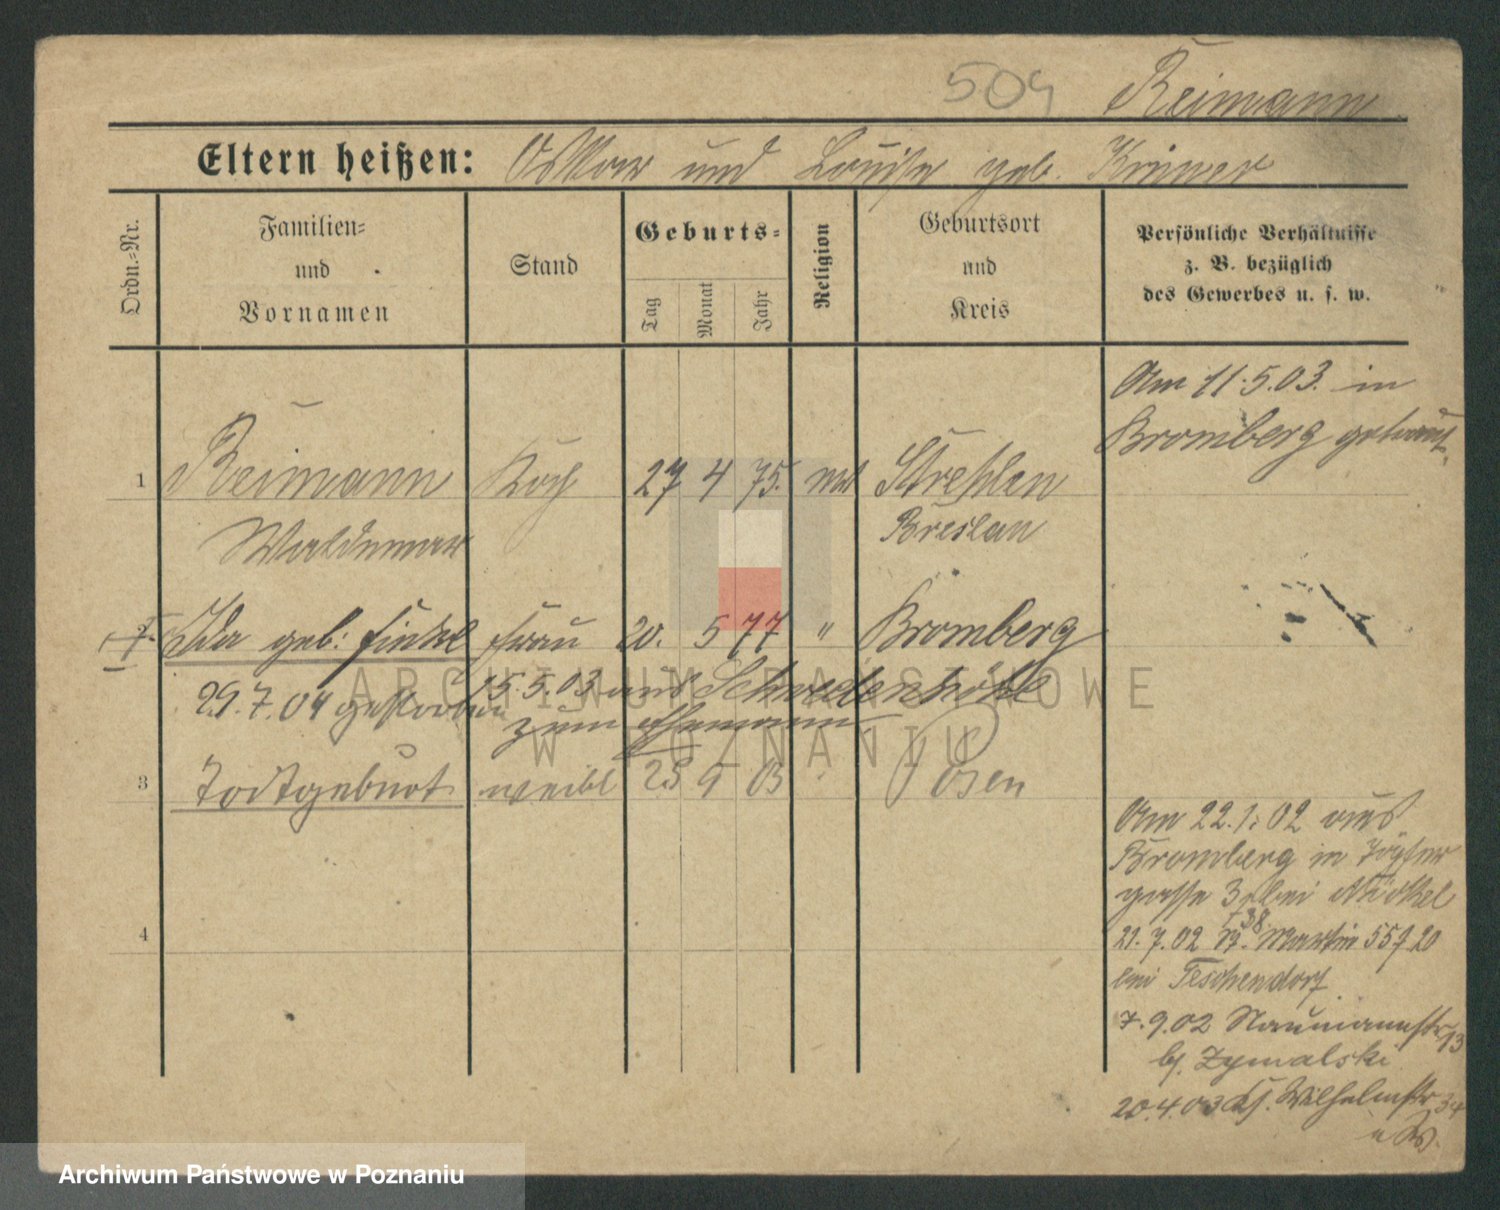 504 Reimann
Eltern heißen: Oskar und Louise geb.
Ordn.-Nr.
Familien-
und
Vornamen
Stand
Geburts-
Tag
Monat
Jahr
Religion
Geburtsort
und
Kreis
Persönliche Verhältnisse
z. B. bezüglich
des Gewerbes u. s. w.
Am 11.5.03. in
Bromberg getraut.
1 Reimann Koch 27 4 75. Strehlen
Waldemar Breslau
2 Ida geb: Finkl Frau 20. 5 77 " Bromberg
29.7.04 gestorben 15.5.03 aus Schwedenhöhe
zum Ehemann
3 Todtgeburt weibl 25 9 03 Posen
Am 22.1.02 aus
Bromberg in Töpfer
gasse 3 bei Nickel
38
21.7.02 St. Martin 55 20
bei Teschendorf
7.9.02 Naumannstr 13
bei Zymalski
20.4.03 Wilhelmstr 34
4
ARCHIWUM PAŃSTWOWE
W POZNANIU
Archiwum Państwowe w Poznaniu